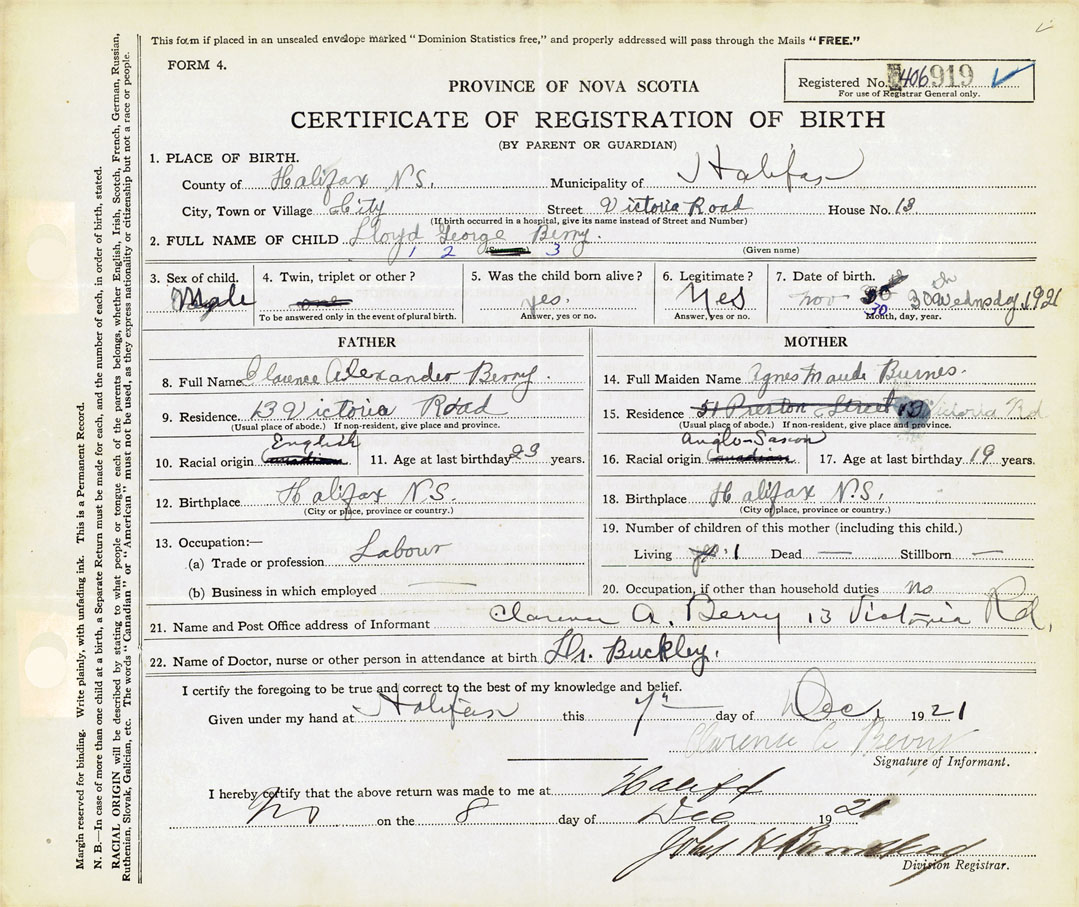 This form if placed in an unsealed envelope marked "Dominion Statistics free," and properly addressed will pass through the Mails "FREE."
FORM 4.
Registered No. 406919
For use of Registrar General only.
PROVINCE OF NOVA SCOTIA
CERTIFICATE OF REGISTRATION OF BIRTH
(BY PARENT OR GUARDIAN)
1. PLACE OF BIRTH.
County of Halifax N.S. Municipality of Halifax
City, Town or Village City Street Victoria Road House No. 13
(If birth occurred in a hospital, give its name instead of Street and Number)
2. FULL NAME OF CHILD Lloyd George Berry.
1 2 3 (Given name)
3. Sex of child. 4. Twin, triplet or other? 5. Was the child born alive? 6. Legitimate? 7. Date of birth.
Male yes. Yes nov 30 30th Wednsday 1921
To be answered only in the event of plural birth. Answer, yes or no. Answer, yes or no. Month, day, year.
FATHER
8. Full Name Clarence Alexander Berry.
9. Residence. 13 Victoria Road
(Usual place of abode.) If non-resident, give place and province.
English
10. Racial origin Canadian 11. Age at last birthday 23 years.
12. Birthplace Halifax N.S.
(City or place, province or country.)
13. Occupation:—
(a) Trade or profession Labour
(b) Business in which employed
MOTHER
14. Full Maiden Name Agnes Maude Burnes.
15. Residence 51 Preston Street 13 Victoria Rd
(Usual place of abode.) If non-resident, give place and province.
Anglo-Saxon
16. Racial origin Canadian 17. Age at last birthday 19 years.
18. Birthplace Halifax N.S.
(City or place, province or country.)
19. Number of children of this mother (including this child.)
Living 1 Dead — Stillborn —
20. Occupation, if other than household duties no
21. Name and Post Office address of Informant Clarence A. Berry 13 Victoria Rd.
22. Name of Doctor, nurse or other person in attendance at birth Dr. Buckley.
I certify the foregoing to be true and correct to the best of my knowledge and belief.
Given under my hand at Halifax this 7th day of Dec. 1921
Clarence A Berry
Signature of Informant.
I hereby certify that the above return was made to me at Halifax
NS on the 8 day of Dec 1921
John H
Division Registrar.
Margin reserved for binding. Write plainly, with unfading ink. This is a Permanent Record.
N. B.—In case of more than one child at a birth, a Separate Return must be made for each, and the number of each, in order of birth, stated.
RACIAL ORIGIN will be described by stating to what people or tongue each of the parents belongs, whether English, Irish, Scotch, French, German, Russian,
Ruthenian, Slovak, Galician, etc. The words "Canadian" or "American" must not be used, as they express nationality or citizenship but not a race or people.